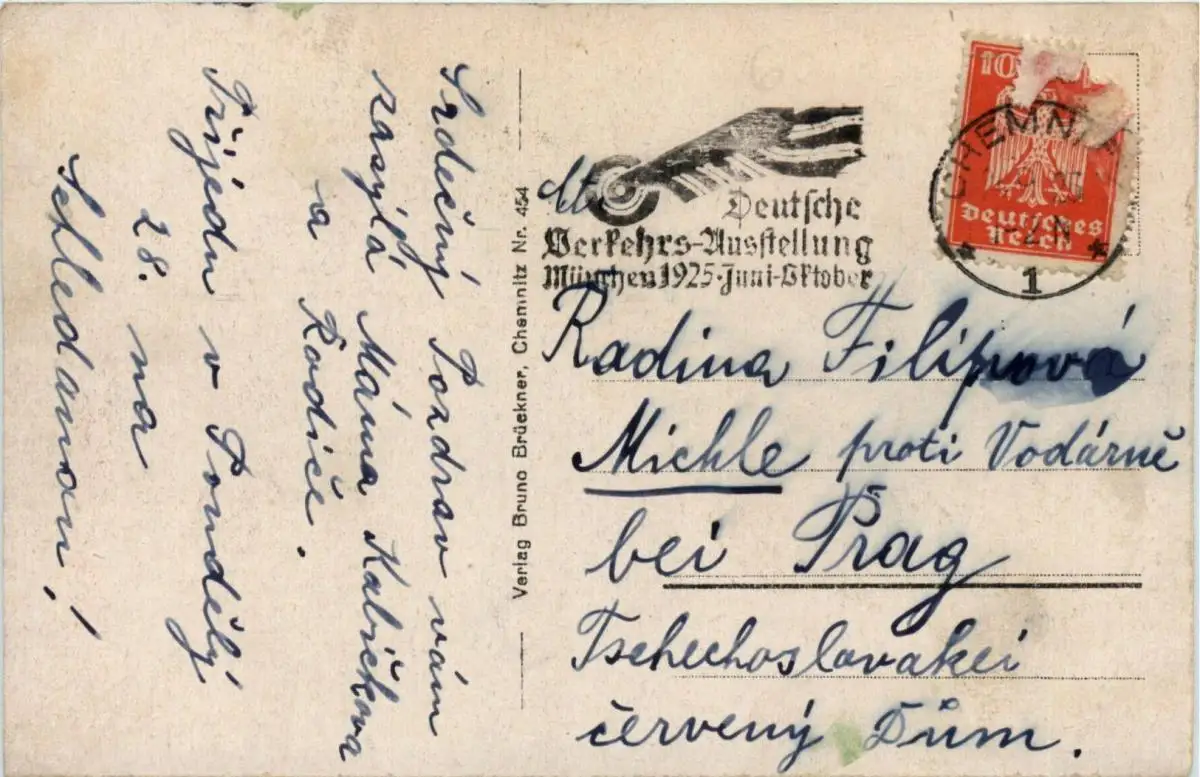 Srdečný Pozdrav vám
zasýlá Máňa Kabíčkova
a Rodiče.
Přijedu v Pondělý
28. na
Schledanou!
Verlag Bruno Brückner, Chemnitz Nr. 454
Deutsche
Verkehrs-Ausstellung
München 1925·Juni-Oktober
10
Deutsches
Reich
CHEMNITZ
1
Radina Filipová
Michle proti Vodárně
bei Prag
Tschechoslovakei
červený Dům.